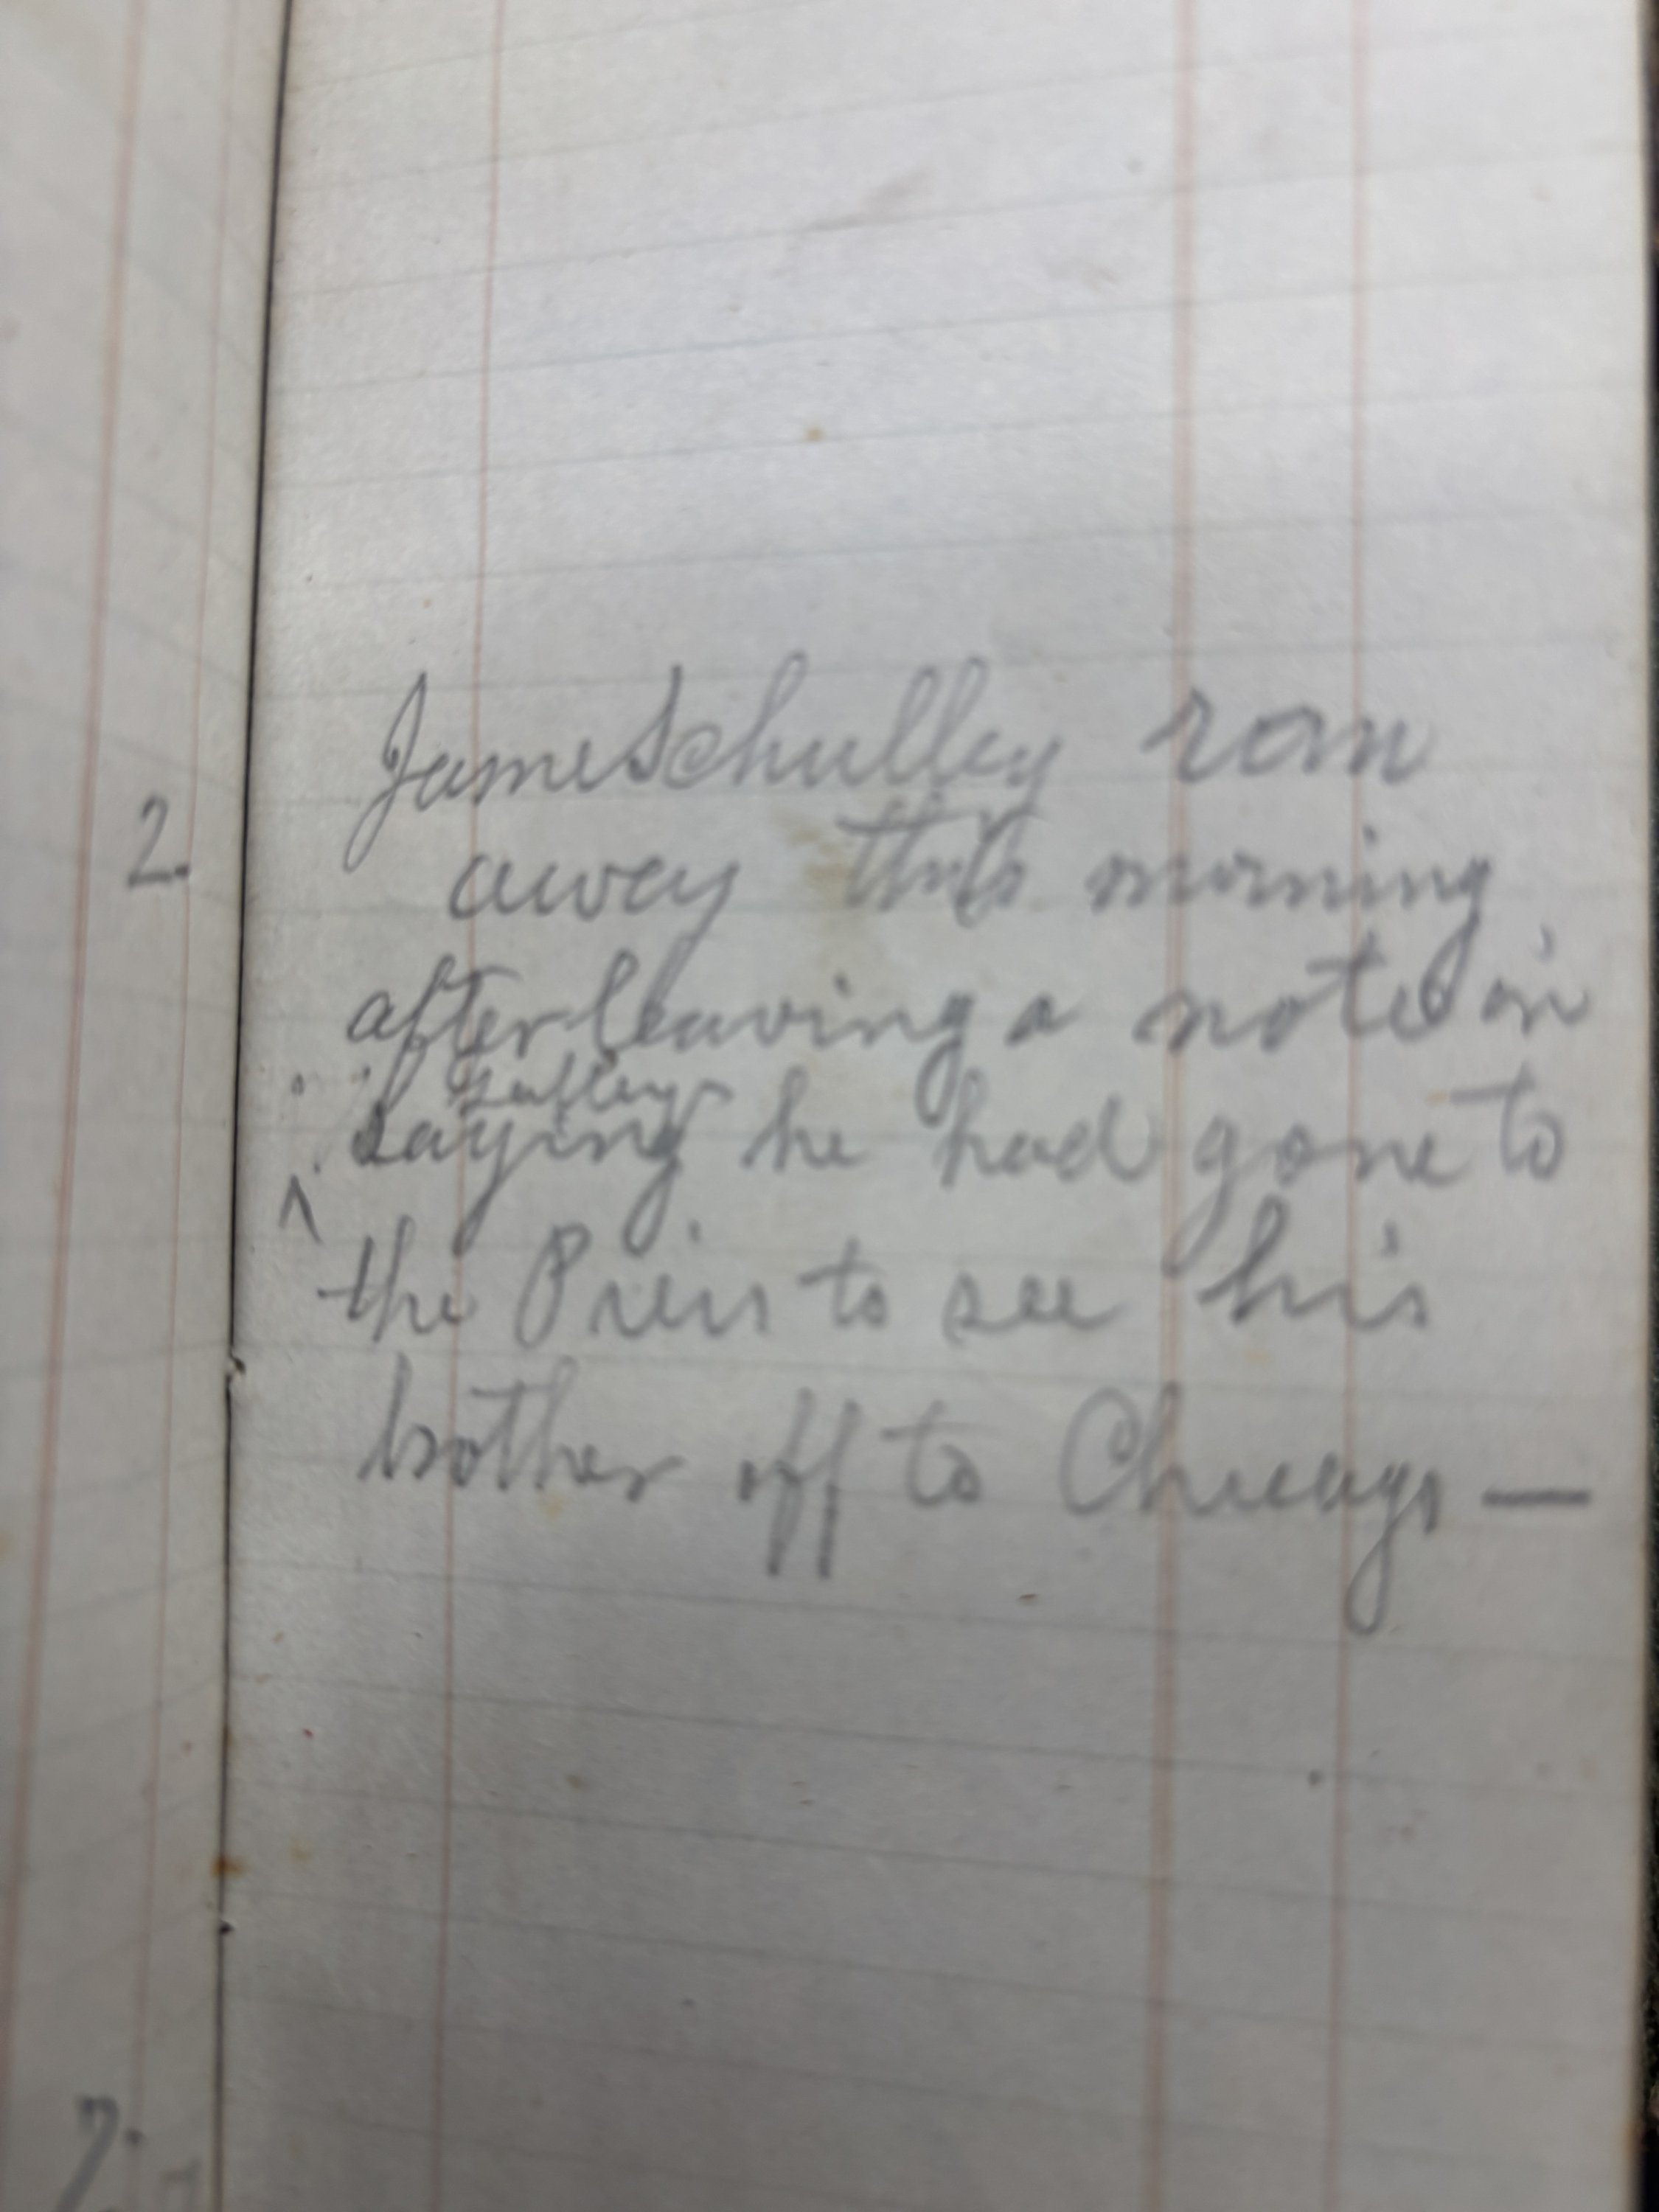 James Schulley ran
2.
away this morning
after leaving a note in
saying he had gone to
the to see his
brother off to Chicago —